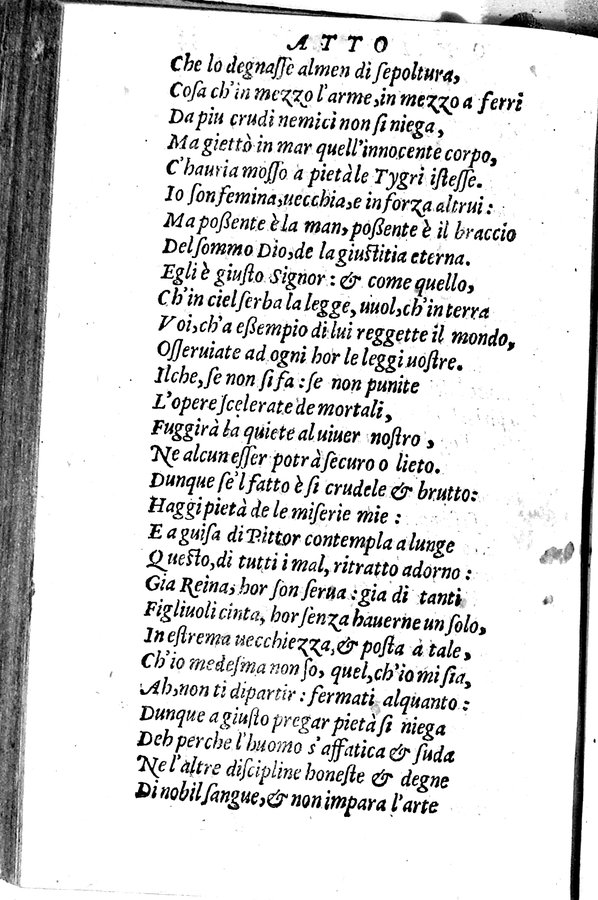 ATTO
Che lo degnaſſe almen di ſepoltura,
Coſa ch'in mezzo l'arme, in mezzo a ferri
Da piu crudi nemici non ſi niega,
Ma gittò in mar quell'innocente corpo,
C'hauria moſſo a pietà le Tygri iſteſſe.
Io ſon femina, uecchia, e in forza altrui:
Ma poßente è la man, poßente è il braccio
Del ſommo Dio, de la giuſtitia eterna.
Egli è giuſto Signor: & come quello,
Ch'in ciel ſerba la legge, uuol, ch'in terra
Voi, ch'a eßempio di lui reggette il mondo,
Oſſeruiate ad ogni hor le leggi uoſtre.
Ilche, ſe non ſi fa: ſe non punite
L'opere ſcelerate de mortali,
Fuggirà la quiete al uiuer noſtro,
Ne alcun eſſer potrà ſecuro o lieto.
Dunque ſe'l fatto è ſi crudele & brutto:
Haggi pietà de le miſerie mie:
E a guiſa di Pittor contempla a lunge
Queſto, di tutti i mal, ritratto adorno:
Gia Reina, hor ſon ſerua: gia di tanti
Figliuoli cinta, hor ſenza hauerne un ſolo,
In eſtrema uecchiezza, & poſta à tale,
Ch'io medeſma non ſo, quel, ch'io mi ſia,
Ah, non ti dipartir: fermati alquanto:
Dunque a giuſto pregar pietà ſi niega
Deh perche l'huomo s'affatica & ſuda
Ne l'altre diſcipline honeſte & degne
Di nobil ſangue, & non impara l'arte